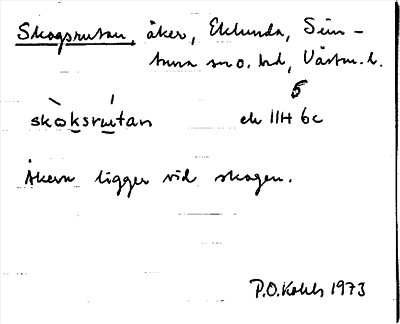 Skogsrutan, åker, Eklunda, Sim-
tuna sn o. hd, Västm. l.
skòksrútan ek 11H 5 6c
Åkern ligger vid skogen.
P.O. Kohls 1973